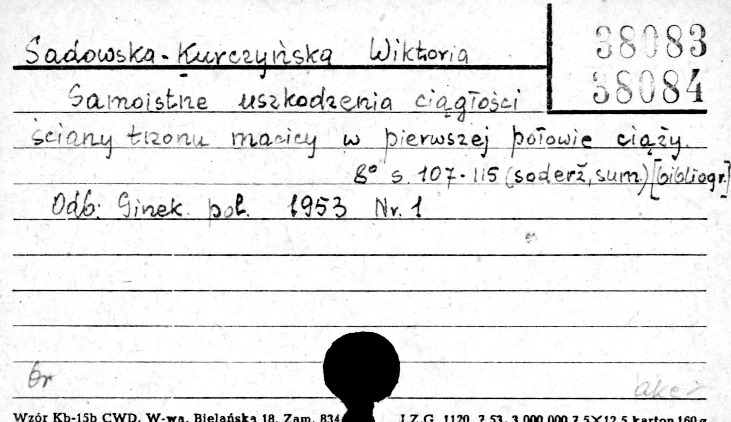 Sadowska-Kurczyńska Wiktoria
38083
38084
Samoistne uszkodzenia ciągłości
ściany trzonu macicy w pierwszej połowie ciąży.
8° s. 107-115 (soderž, sum.) [bibliogr.]
Odb: Ginek. pol. 1953 Nr. 1
br
akc
Wzór Kb-15b CWD, W-wa, Bielańska 18. Zam. 834 I.Z.G. 1120 7.53. 3.000.000 7,5×12,5 karton 160 g